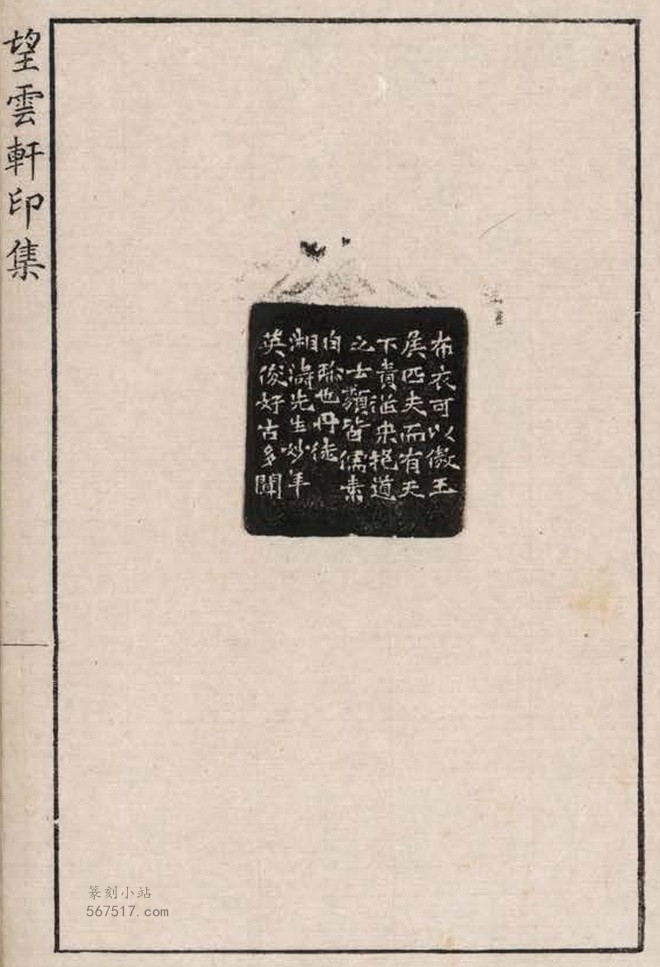 望雲軒印集
布衣可以傲王
矦匹夫而有天
下責從来抱道
之士類皆儒素
自珎也丹徒
湘濤先生妙年
英俊好古多聞
篆刻小站
567517.com